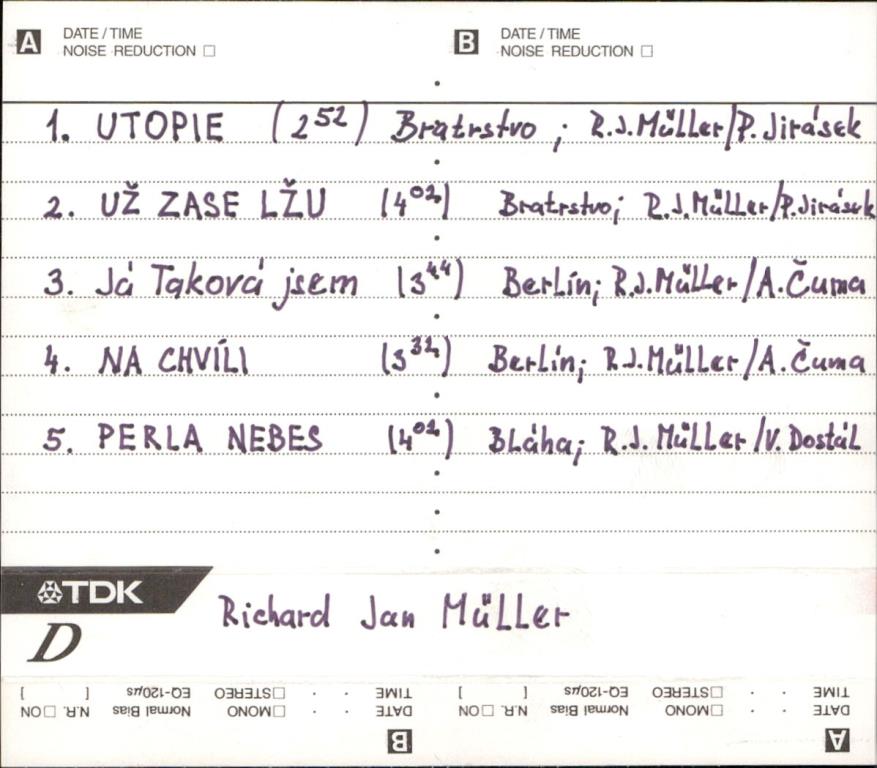 A DATE / TIME NOISE REDUCTION □ B DATE / TIME NOISE REDUCTION □
1. UTOPIE (2 52) Bratrstvo ; R.J.Müller/P. Jirásek
2. UŽ ZASE LŽU (4 01) Bratrstvo; R.J.Müller/P.Jirásek
3. Já Taková jsem (3 44) Berlín; R.J.Müller/A.Čuma
4. NA CHVÍLI (3 31) Berlín; R.J.Müller/A.Čuma
5. PERLA NEBES (4 01) Bláha; R.J. Müller/V. Dostál
TDK
D
Richard Jan Müller
A DATE TIME □MONO □STEREO Normal Bias EQ-120µs N.R. □ON [ ]
B DATE TIME □MONO □STEREO Normal Bias EQ-120µs N.R. □ON [ ]